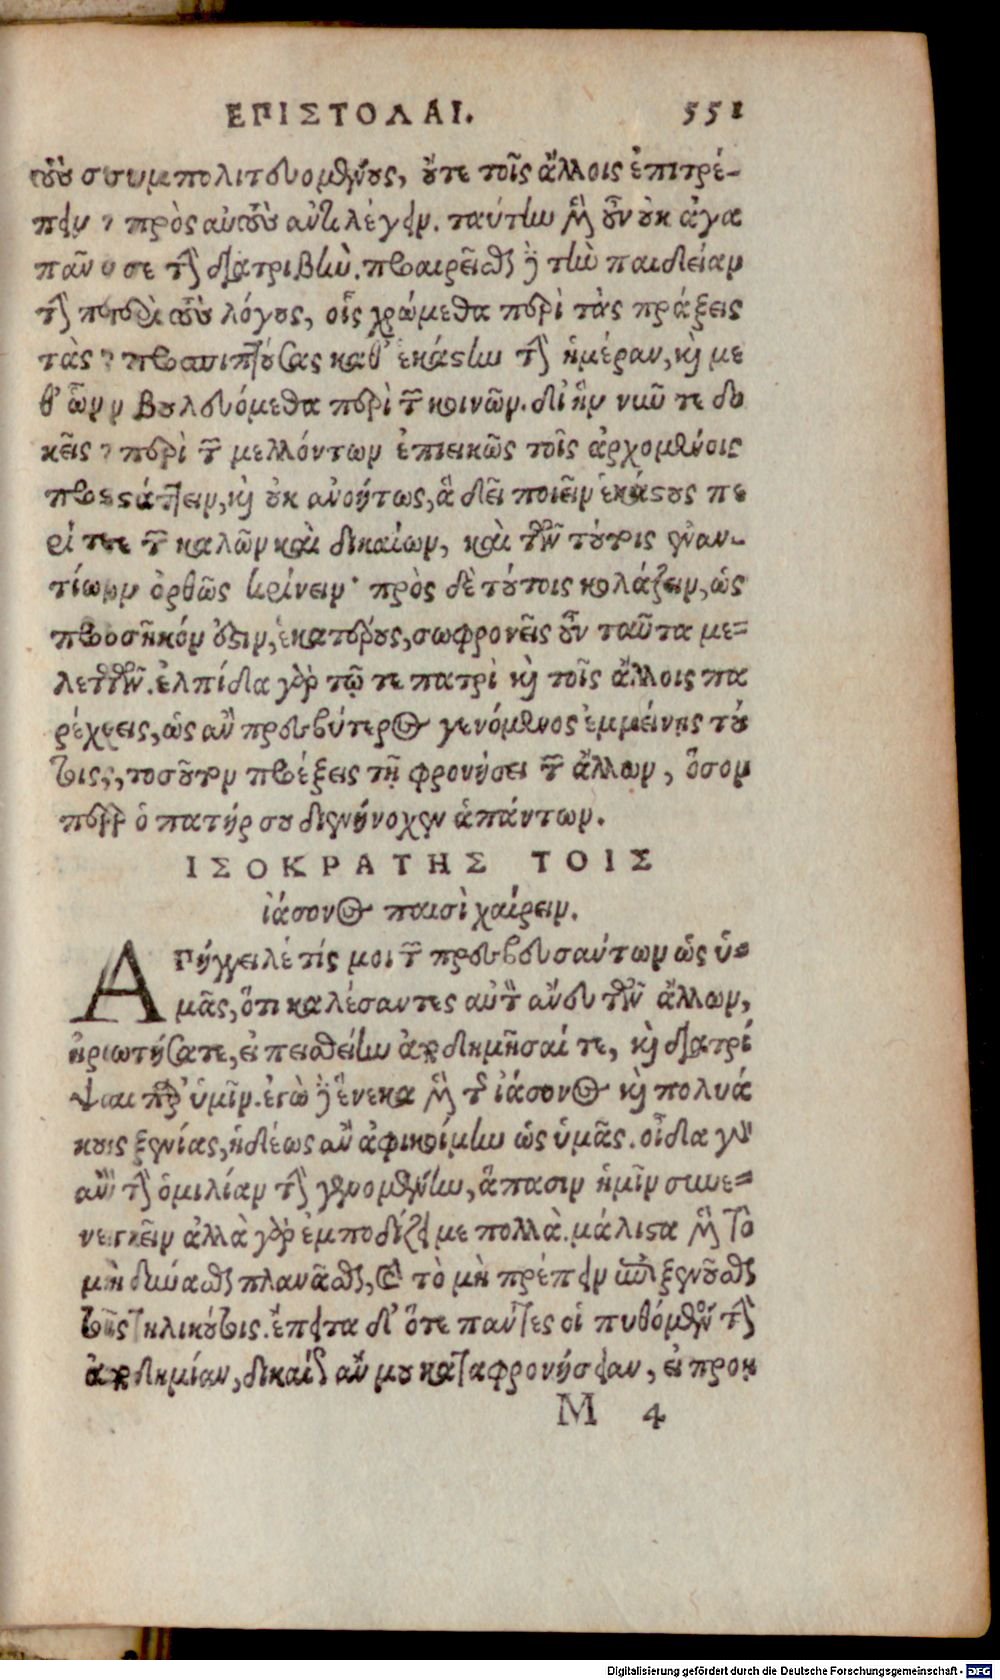 ΕΠΙΣΤΟΛΑΙ. 551
τοὺς συμπολιτευομένους, οὔτε τοῖς ἄλλοις ἐπιτρέ-
πειν πρὸς αὐτοὺς ἀντιλέγειν. ταύτην μὲν οὖν οὐκ ἀγα
πᾶν σε τὴν διατριβὴν. προαιρεῖσθαι δὲ τὴν παιδείαν
τὴν περὶ τοὺς λόγους, οἷς χρώμεθα περὶ τὰς πράξεις
τὰς προσπιπτούσας καθ' ἑκάστην τὴν ἡμέραν, καὶ με
θ' ὧν βουλευόμεθα περὶ τῶν κοινῶν. δι' ἣν νῦν τε δο
κεῖς περὶ τῶν μελλόντων ἐπιεικῶς τοῖς ἀρχομένοις
προστάττειν, καὶ οὐκ ἀνοήτως, ἃ δεῖ ποιεῖν ἑκάστους πε
ρί τε τῶν καλῶν καὶ δικαίων, καὶ τῶν τούτοις ἐναν-
τίων ὀρθῶς κρίνειν· πρὸς δὲ τούτοις κολάζειν, ὡς
προσῆκόν ἐστιν, ἑκατέρους, σωφρονεῖς οὖν ταῦτα με=
λετῶν. ἐλπίδα γὰρ τῷ τε πατρὶ καὶ τοῖς ἄλλοις πα
ρέχεις, ὡς ἂν πρεσβύτερος γενόμενος ἐμμείνῃς τού
τοις, τοσοῦτον προέξεις τῇ φρονήσει τῶν ἄλλων, ὅσον
περ ὁ πατήρ σου διενήνοχεν ἁπάντων.
ΙΣΟΚΡΑΤΗΣ ΤΟΙΣ
ἰάσονος παισὶ χαίρειν.
ΑΠήγγειλέ τίς μοι τῶν πρεσβευσάντων ὡς ὑ=
μᾶς, ὅτι καλέσαντες αὐτὸν ἄνευ τῶν ἄλλων,
ἠρωτήσατε, εἰ πεισθείην ἀποδημῆσαί τε, καὶ διατρί
ψαι παρ' ὑμῖν. ἐγὼ δὲ ἕνεκα μὲν τῆς ἰάσονος καὶ πολυά
κους ξενίας, ἡδέως ἂν ἀφικοίμην ὡς ὑμᾶς. οἶδα γὰρ
ἂν τὴν ὁμιλίαν τὴν γενομένην, ἅπασιν ἡμῖν συνε=
νεγκεῖν ἀλλὰ γὰρ ἐμποδίζει με πολλὰ. μάλιστα μὲν τὸ
μὴ δύνασθαι πλανᾶσθαι, καὶ τὸ μὴ πρέπειν ἐπιξενοῦσθαι
τοῖς τηλικούτοις. ἔπειτα δ' ὅτε πάντες οἱ πυθόμενοι τὴν
ἀποδημίαν, δικαίως ἄν μου καταφρονήσειαν, εἰ προῃ
M 4
Digitalisierung gefördert durch die Deutsche Forschungsgemeinschaft - DFG